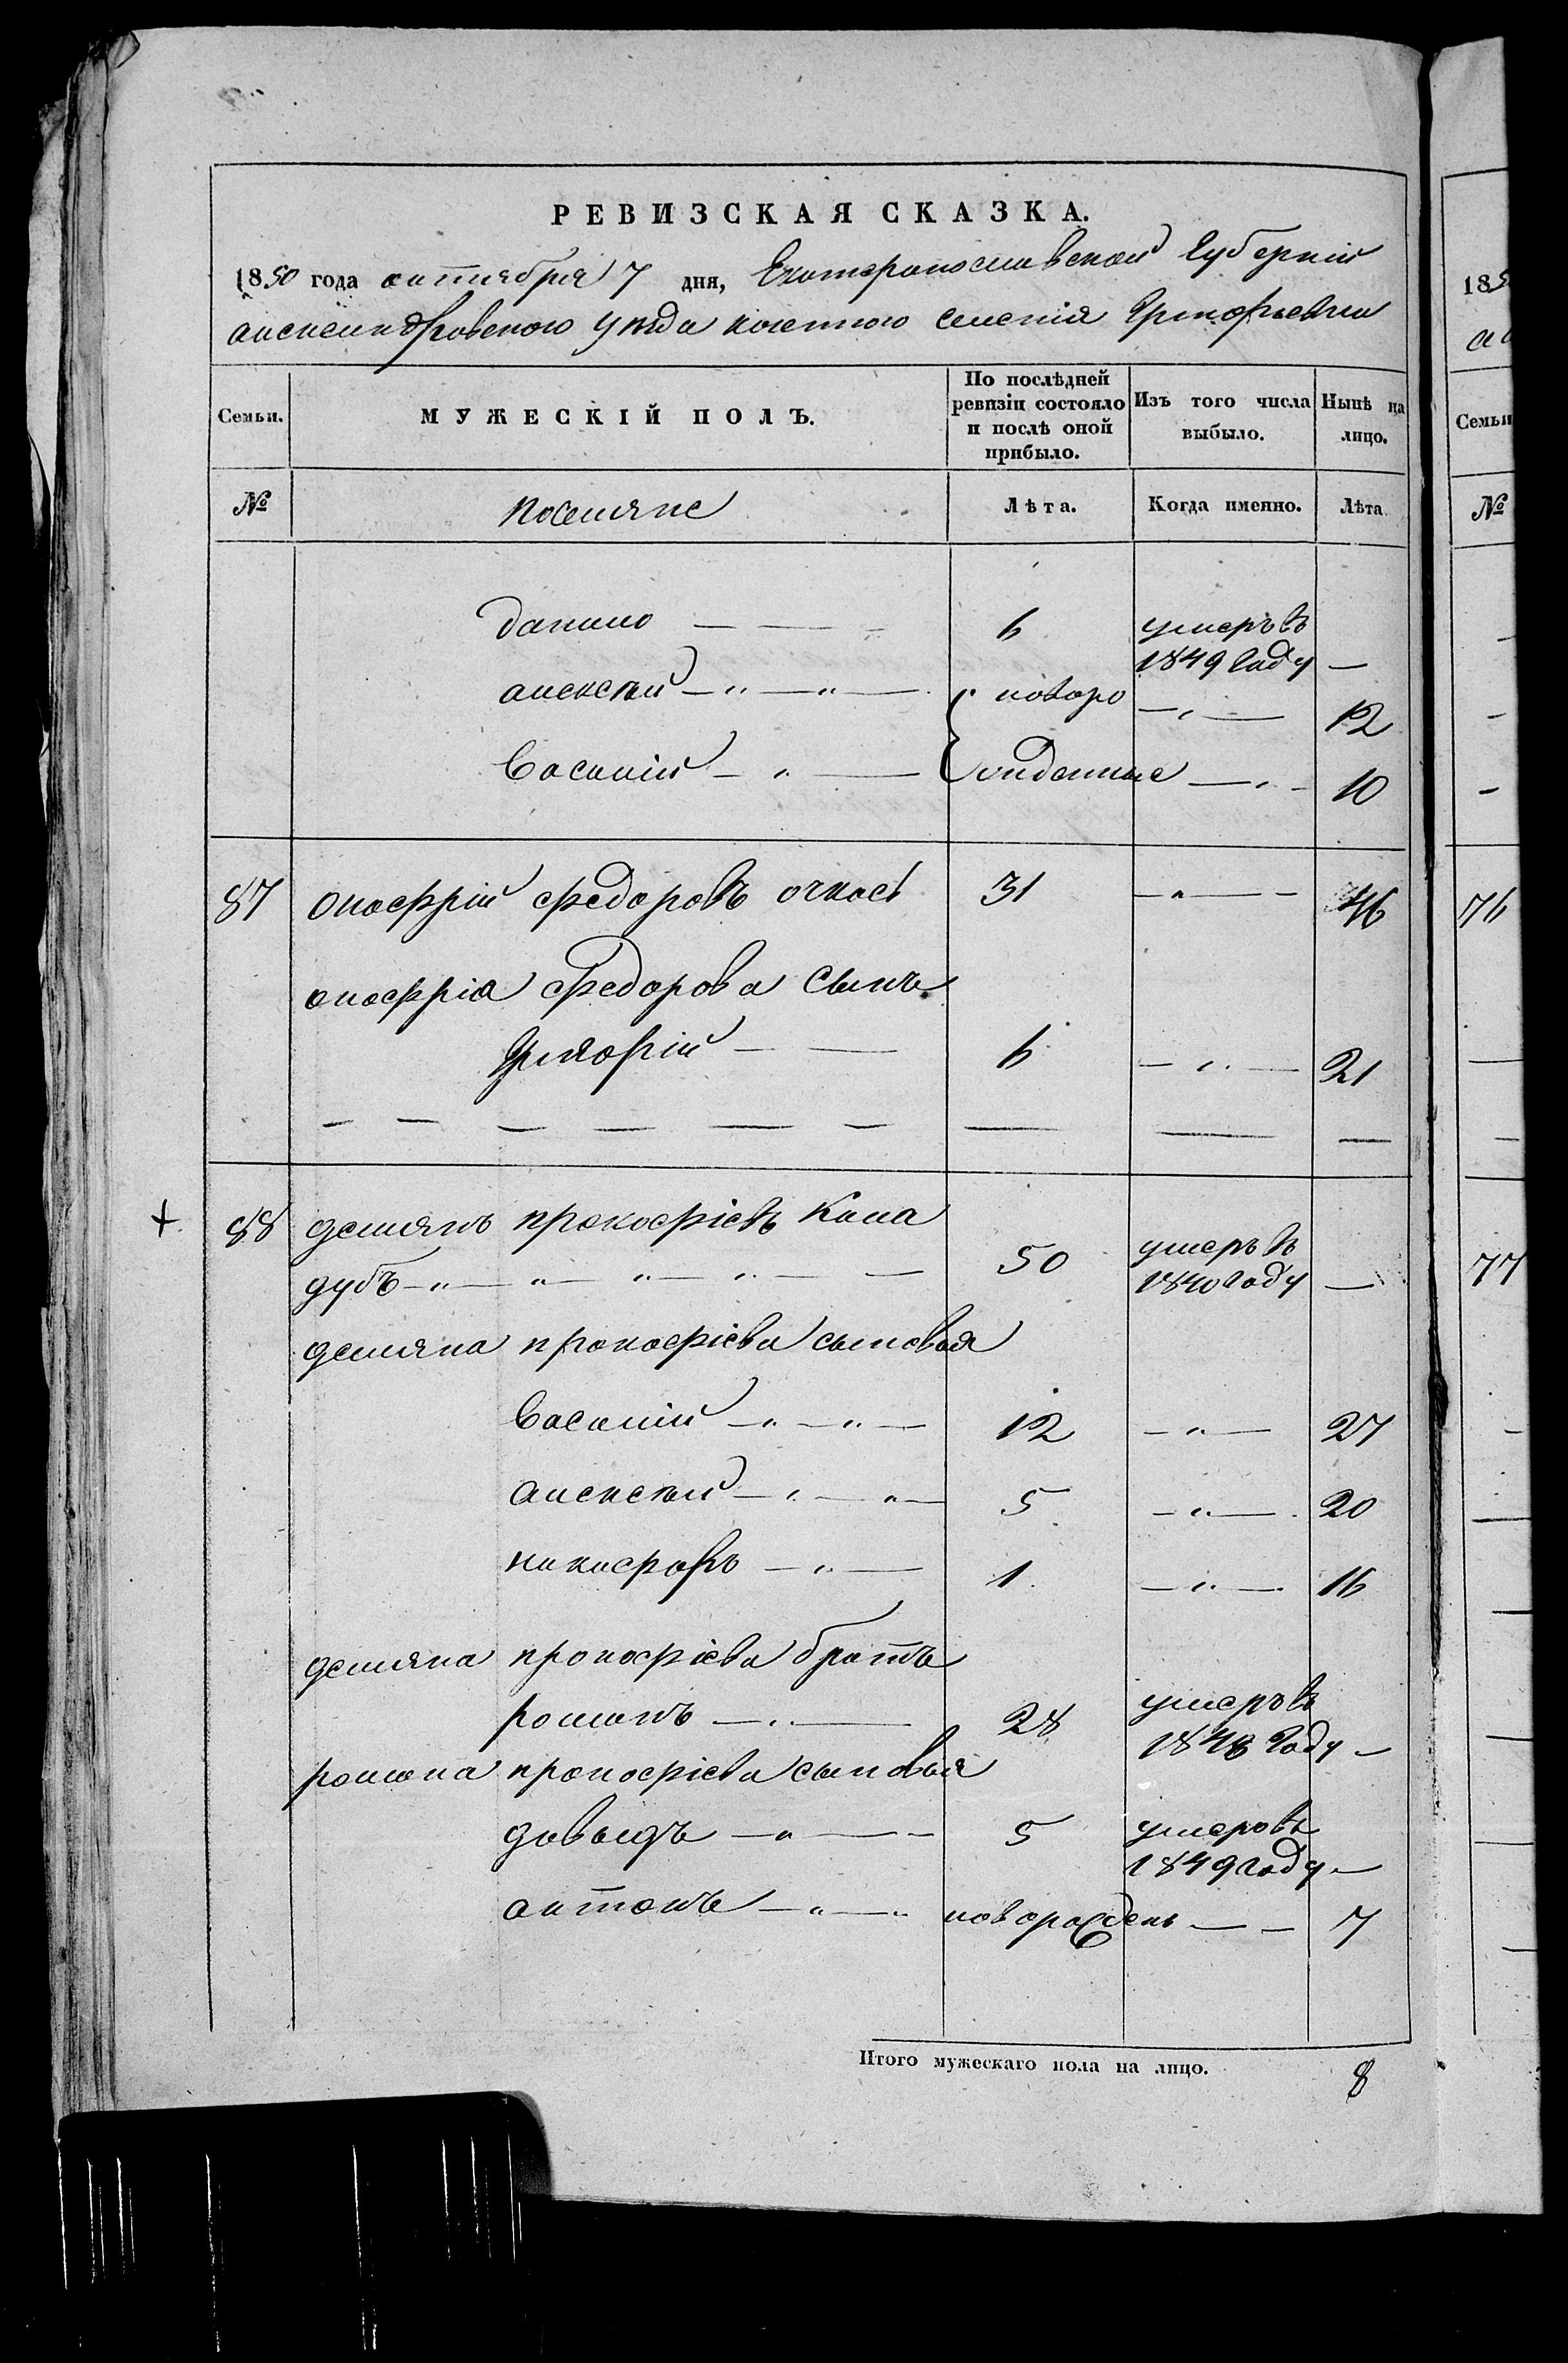 РЕВИЗСКАЯ СКАЗКА.
1850 года октября 7 дня, Екатеринославской Губерніи
александровского уезда казенного селенія Григорьевки
Семьи. МУЖЕСКІЙ ПОЛЪ. По послѣдней ревизіи состояло и послѣ оной прибыло. Изъ того числа выбыло. Нынѣ на лицо.
№ поселяне Лѣта. Когда именно. Лѣта
данило — — - 6 умеръ въ 1849 году —
алексѣй — „ — „ — новоро — „ — 12
Василій — „ — жденные — „ - 10
87 онофрій федоровъ 31 — „ — 46
онофрія федорова сынъ
Григорій — — 6 — „ — 21
— — — — — — — — —
+ 88 демянъ прокофіевъ Кала
дубъ — „ — „ — „ — „ — — 50 умеръ въ 1840 году —
демяна прокофіева сыновья
Василій — „ — „ — 12 — „ — 27
алексѣй — „ — „ — 5 — „ — 20
никифоръ — „ — 1 — „ — 16
демяна прокофіева братъ
романъ — „ — 28 умеръ въ 1848 году —
романа прокофіева сыновья
давыдъ — „ — - 5 умеръ въ 1849 году —
антонъ — „ — „ новорожденъ — — 7
Итого мужескаго пола на лицо. 8
185
Семьи
№
76
77